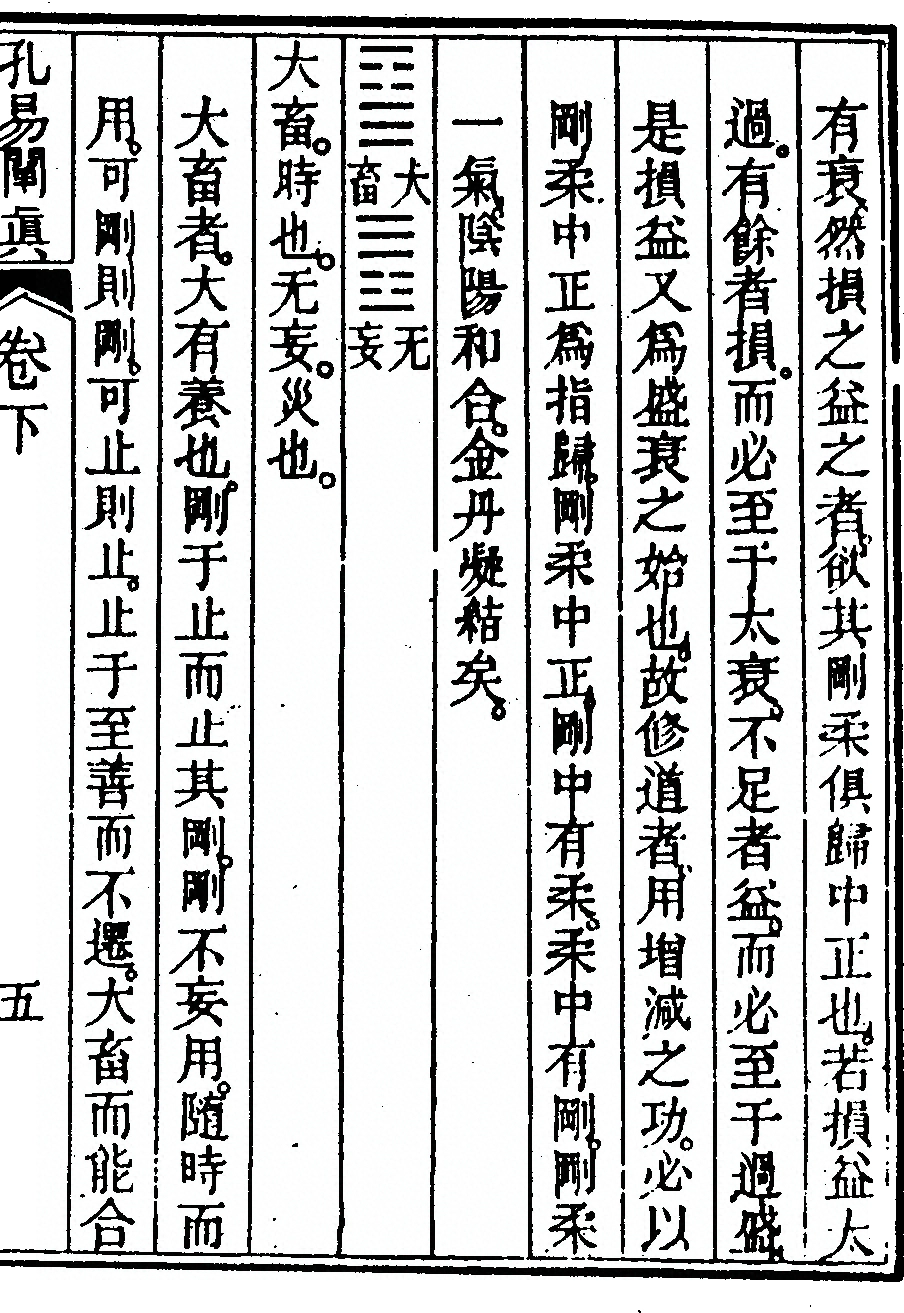 有衰、然損之益之者。欲其剛柔俱歸中正也。若損益太
過。有餘者損。而必至于太衰、不足者益。而必至于過盛、
是損益又爲盛衰之始也。故修道者、用增減之功。必以
剛柔中正爲指歸。剛柔中正。剛中有柔。柔中有剛。剛柔
一氣。陰陽和合。金丹凝結矣。
䷙大畜䷘无妄
大畜。時也。无妄。災也。
大畜者。大有養也。剛于止而止其剛。剛不妄用。隨時而
用。可剛則剛。可止則止。止于至善而不遷。大畜而能合
孔易闡眞 卷下 五